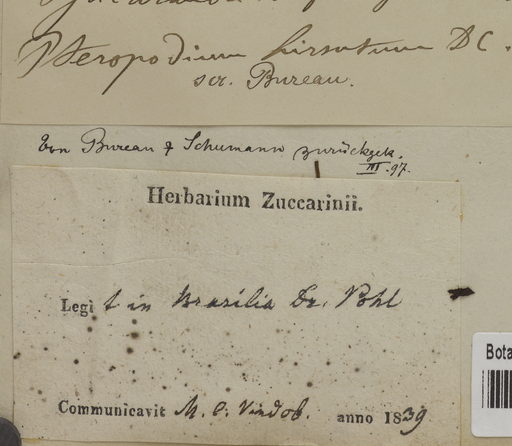 Pteropodium hirsutum DC.
scr. Bureau.
Von Bureau & Schumann zurückgek.
III.97.
Herbarium Zuccarinii.
Legit in Brasilia Dr. Pohl
Communicavit M. C. Vindob. anno 1839
Bota